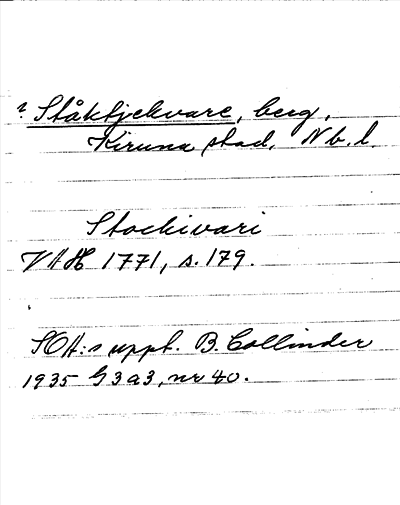 ? Ståktjekvare, berg,
Kiruna stad, Nb. l.
Stockivari
VAH 1771, s. 179.
SOA:s uppt. B. Collinder
1935 G 3 a 3, nr 40.